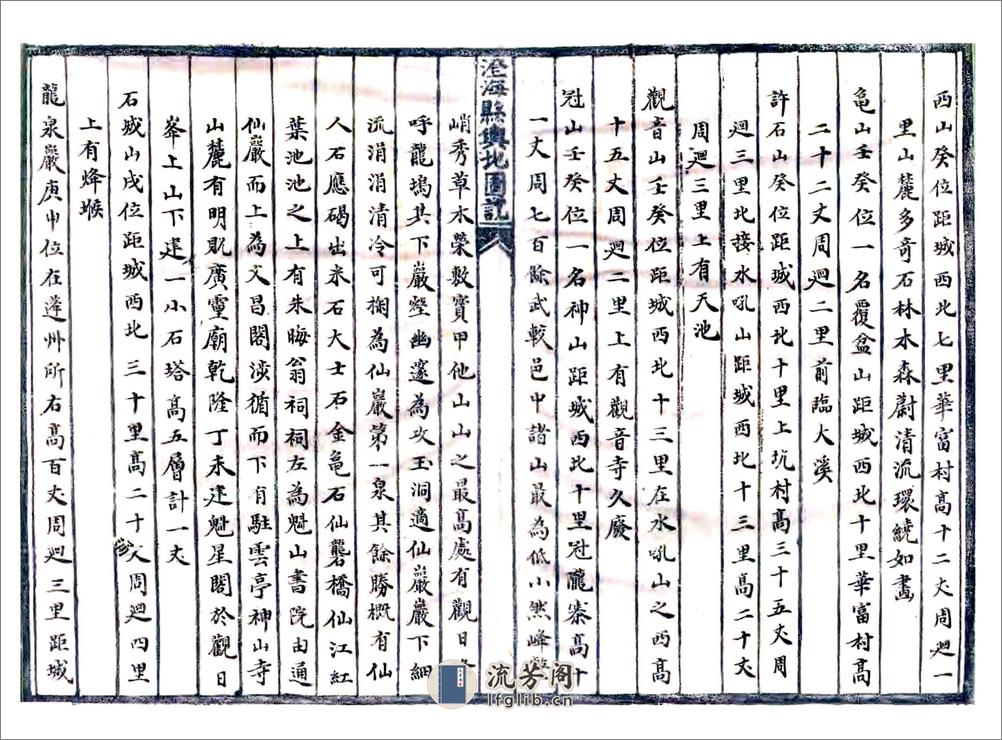 西山癸位距城西北七里華富村高十二丈周廻一
里山麓多奇石林木森蔚清流環繞如畫
龜山壬癸位一名覆盆山距城西北十里華富村高
二十二丈周廻二里前臨大溪
許石山癸位距城西北十里上坑村高三十五丈周
廻三里北接水吼山距城西北十三里高二十丈
周廻三里上有天池
觀音山壬癸位距城西北十三里在水吼山之西高
十五丈周廻二里上有觀音寺久廢
冠山壬癸位一名神山距城西北十里冠隴寨高十
一丈周七百餘武較邑中諸山最為低小然峰
澄海縣輿地圖說
峭秀草木榮敷實甲他山山之最高處有觀日
呼龍塢其下巖壑幽邃為攻玉洞適仙巖巖下細
流涓涓清冷可掬為仙巖第一泉其餘勝概有仙
人石應碣出米石大士石金龜石仙礱橋仙江紅
葉池池之上有朱晦翁祠祠左為魁山書院由通
仙巖而上為文昌閣涉循而下有駐雲亭神山寺
山麓有明貺廣靈廟乾隆丁未建魁星閣於觀日
峯上山下建一小石塔高五層計一丈
石城山戌位距城西北三十里高二十八丈周廻四里
上有烽堠
龍泉巖庚申位在蓬州所右高百丈周廻三里距城
流芳阁
lfglib.cn